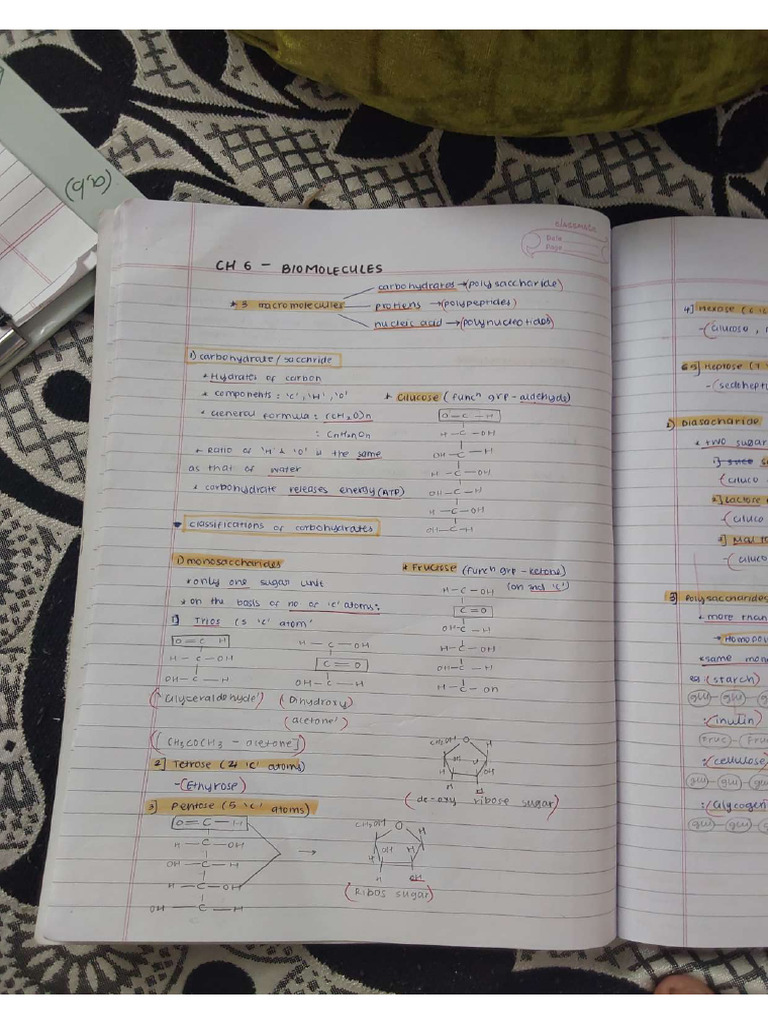 (a,b)
classmate
Date
Page
CH 6 - BIOMOLECULES
carbohydrates → (polysaccharide)
* 3 macromolecules
protiens → (polypeptides)
nucleic acid → (polynucleotides)
1) carbohydrate / sacchride
* Hydrates of carbon
* components : 'C', 'H', 'O'
* General formula : (CH2O)n
: CnH2nOn
* Ratio of 'H' & 'O' is the same
as that of water
* carbohydrate releases energy (ATP)
* Glucose (funcn grp - aldehyde)
O = C - H
H - C - OH
OH - C - H
H - C - OH
OH - C - H
H - C - OH
OH - C - H
classifications of carbohydrates
1) monosaccharides
* only one sugar unit
* on the basis of no of 'C' atoms:
1] Trios (3 'C' atom)
O = C H
H - C - OH
OH - C - H
(Glyceraldehyde)
H - C - OH
C = O
OH - C - H
(Dihydroxy)
(acetone)
[CH3COCH3 - acetone]
* Fructose (funcn grp - ketone)
(on 2nd 'C')
H - C - OH
C = O
OH - C - H
H - C - OH
OH - C - H
H - C - OH
2] Tetrose (4 'C' atoms)
- (Ethyrose)
3] Pentose (5 'C' atoms)
O = C - H
H - C - OH
OH - C - H
H - C - OH
OH - C - H
→
CH2OH O H
OH H
H
H OH
(Ribos sugar)
CH2OH O H
OH
H H
(de-oxy ribose sugar)
4] Hexose (6 'C
- (Glucose,
Heptose (7
- (sedohept
2) Diasacharide
* two sugar
(Gluco
2] Lactose
(Gluco
(Gluco
3] Polysaccharides
* more than
→ Homopo
* same mon
eg : (starch)
glu - glu - glu
: (inulin)
Fruc - Fruc
: (cellulose)
glu - glu - glu
: (Glycogen
glu - glu - glu